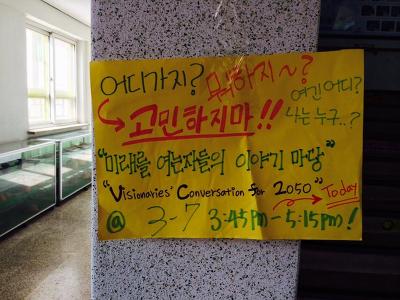 어디가지? 뭐하지~?
여긴 어디?
→ 고민하지마!!
나는 누구..?
"미래를 여는자들의 이야기 마당"
"Visionaries' Conversation for 2050"
→ Today
@ 3-7 3:45pm - 5:15pm!